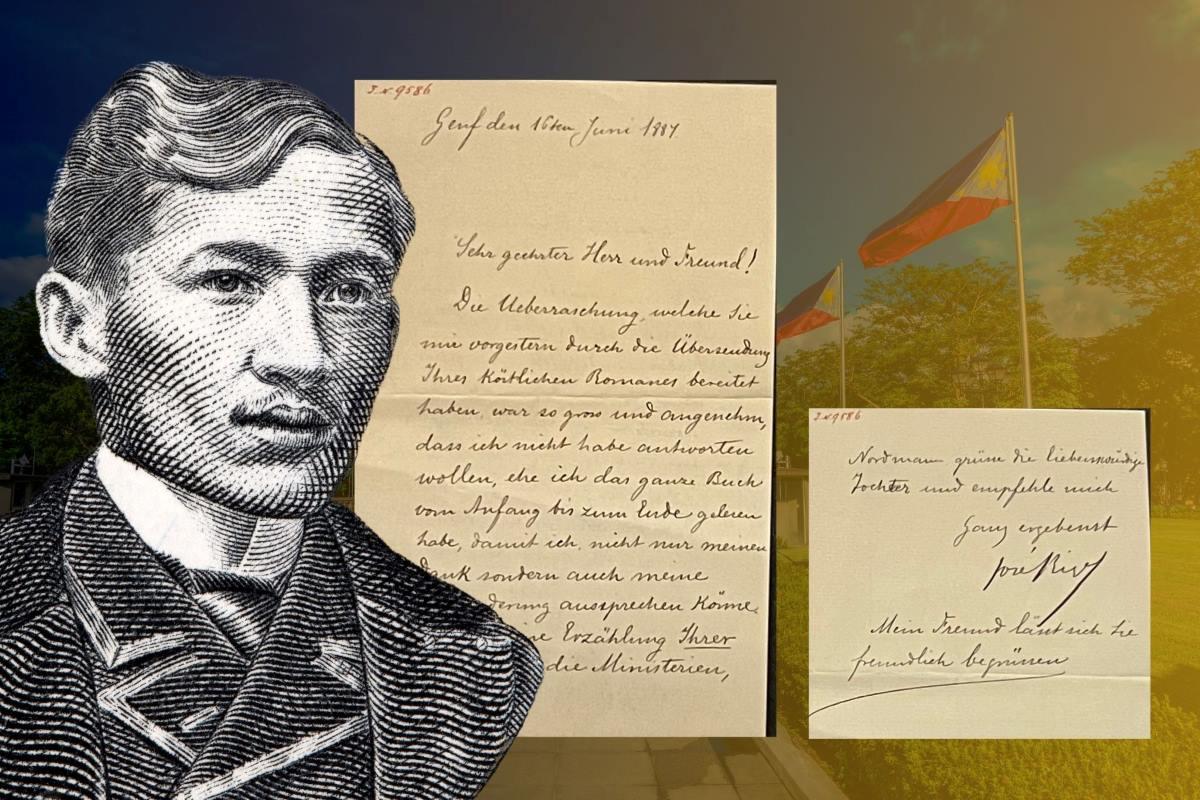 9586
Genf den 16ten Juni 1887.
Sehr geehrter Herr und Freund!
Die Ueberraschung, welche Sie
mir vorgestern durch die Übersendung
Ihres köstlichen Romanes bereitet
haben, war so gross und angenehm,
dass ich nicht habe antworten
wollen, ehe ich das ganze Buch
vom Anfang bis zum Ende gelesen
habe, damit ich, nicht nur meinen
Dank sondern auch meine
derung aussprechen könne.
ne Erzählung Ihrer
die Ministerien,
9586
die liebenswürdige
Tochter und empfehle mich
Ganz ergebenst
José Rizal
Mein Freund lässt sich Sie
freundlich begrüssen